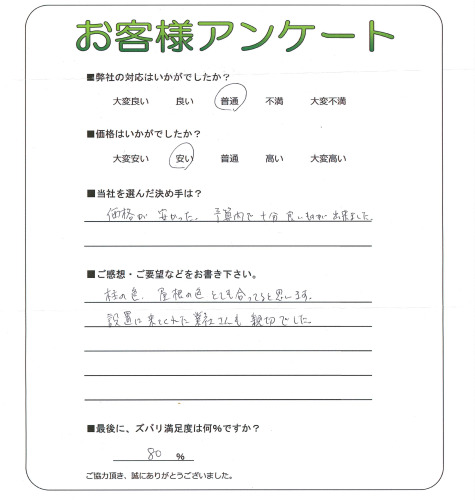 お客様アンケート
■弊社の対応はいかがでしたか？
大変良い 良い 普通 不満 大変不満
■価格はいかがでしたか？
大変安い 安い 普通 高い 大変高い
■当社を選んだ決め手は？
価格が 安かった。予算内で 十分 良い物が 出来ました
■ご感想・ご要望などをお書き下さい。
柱の色、屋根の色 とても合ってると思います。
設置に来てくれた 業者さんも 親切でした
■最後に、ズバリ満足度は何％ですか？
80 ％
ご協力頂き、誠にありがとうございました。